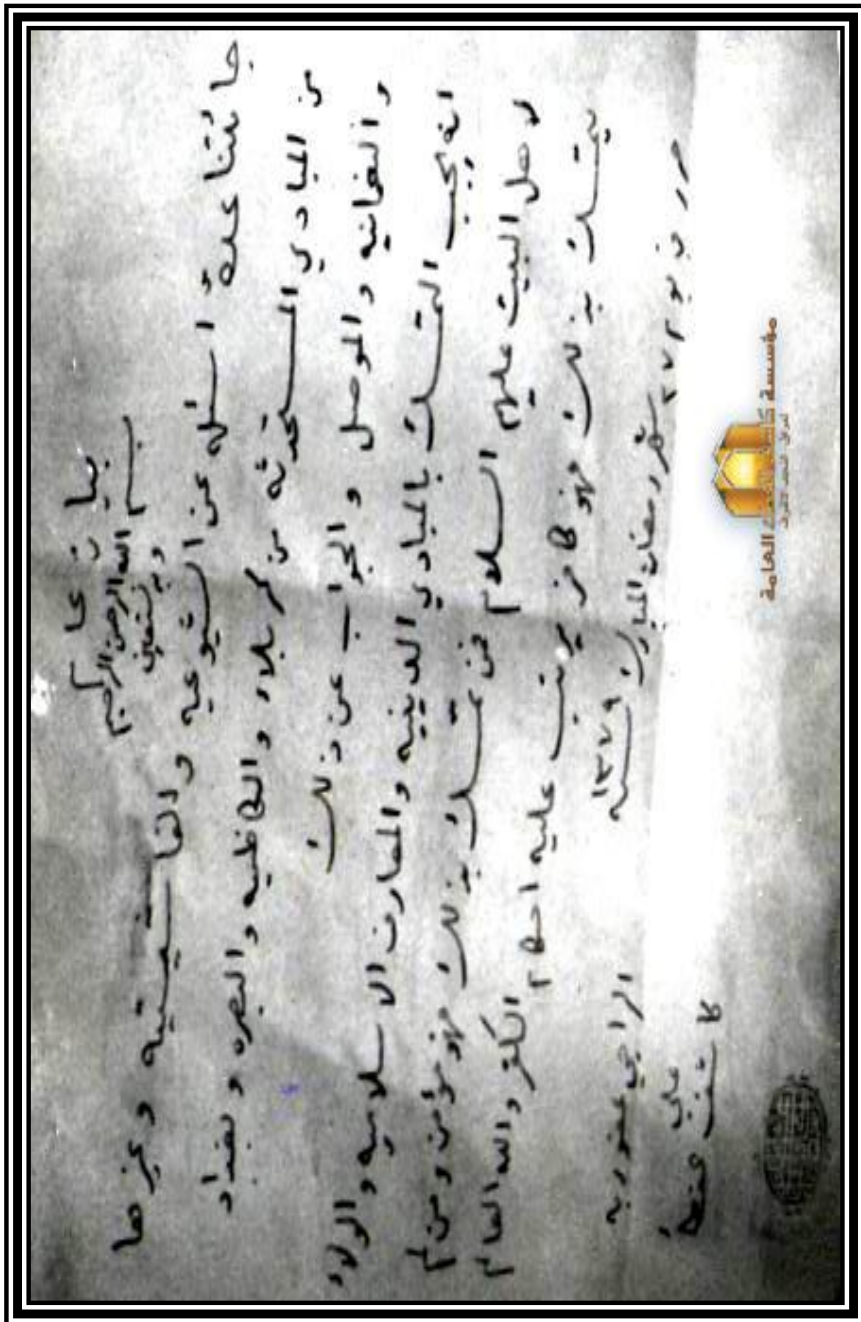 بيان عام
بسم الله الرحمن الرحيم
وبه نستعين
جائتنا عدة اسئله عن الشيوعيه والفاشيستيه وغيرها
من المبادي المستحدثه من كربلاء والكاظميه والبصره وبغداد
والنعمانيه والموصل والجواب عن ذلك
انه يجب التمسك بالمبادي الدينيه والمعارف الاسلاميه والولاء
لاهل البيت عليهم السلام فمن تمسك بذلك فهو مؤمن ومن لم
يتمسك بذلك فهو كافر يرتب عليه احكام الكفر والله العالم
حرر في يوم ٢٧ شهر رمضان المبارك سنه ١٣٧٩
الراجي عفو ربه
علي
كاشف الغطاء
مؤسسة كاشف الغطاء العامة